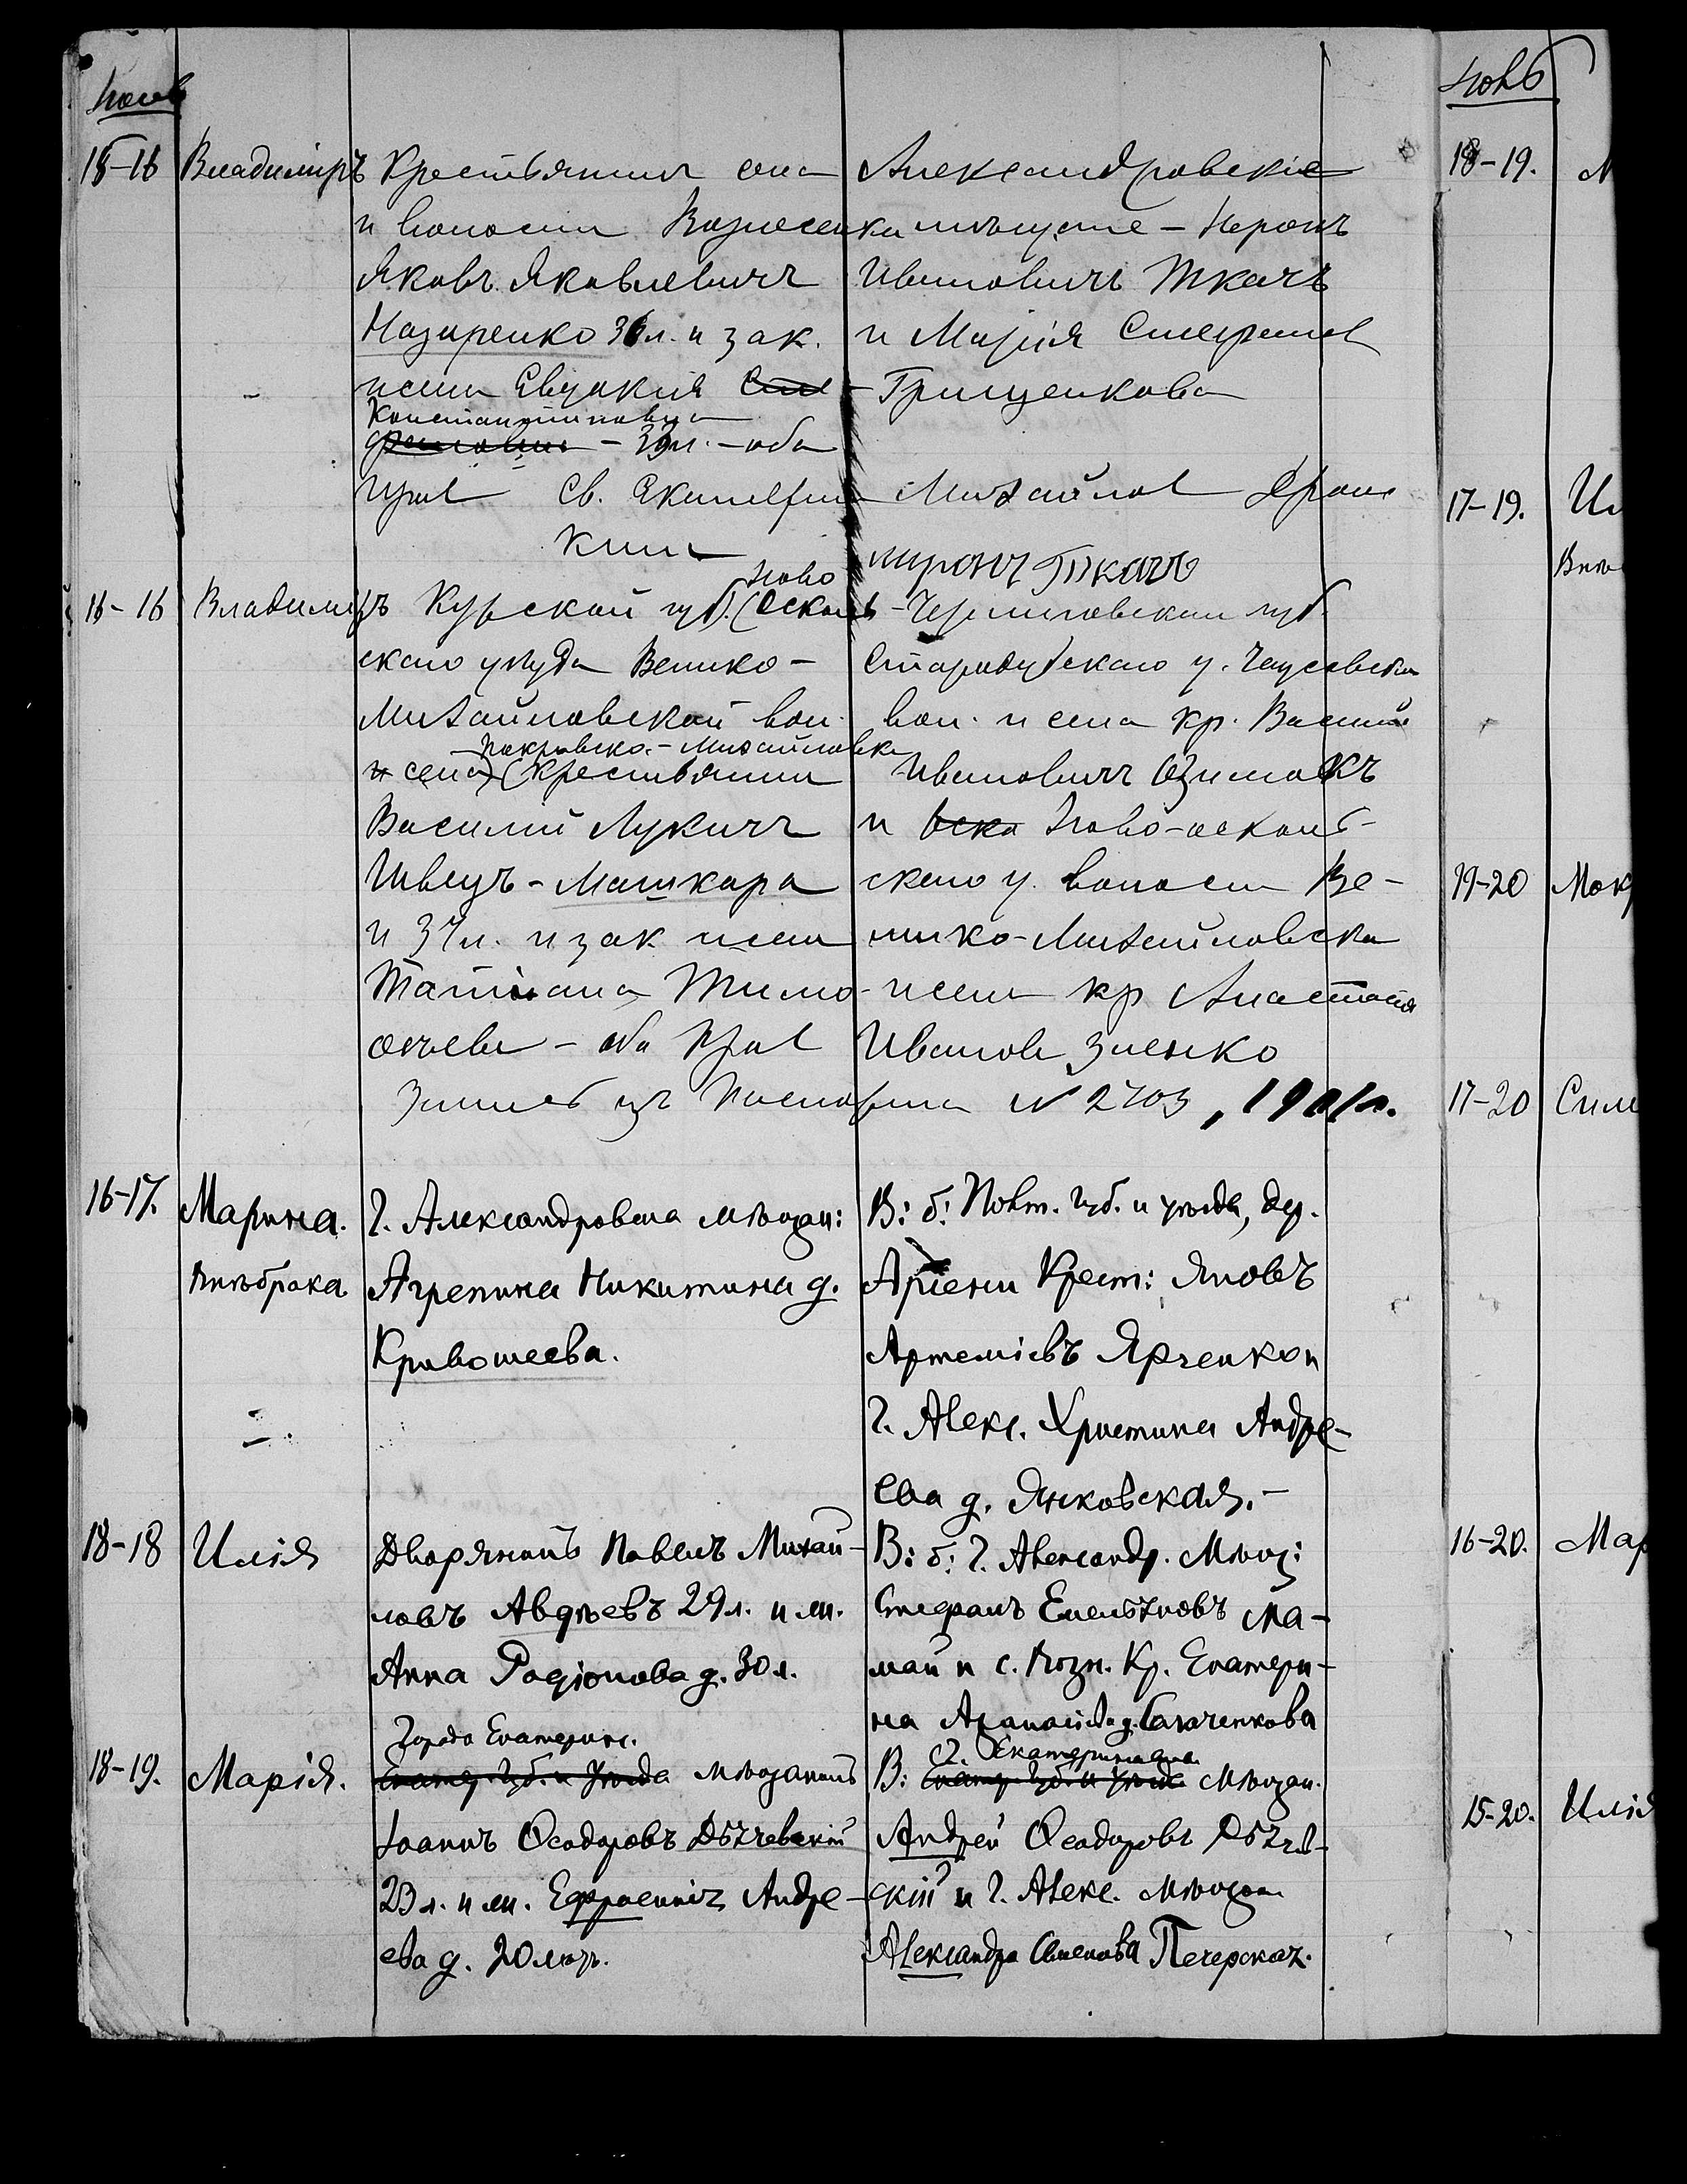 Іюль
15-16 Владиміръ Крестьянинъ села
и волости Вознесенка
Яковъ Яковлевичъ
Назаренко 36 л. и зак.
жена Евдокия
Константиновна
- 39 л. - оба
прав Св. Екатерин
Александровские
мѣщане - Мѵронъ
Ивановичъ Ткачъ
и Марія Стефанов
Грищенкова
Михайлов
Миронъ Ткачъ
16-16 Владиміръ Курской губ. (Ново Осколь-
скаго уѣзда Велико-
Михайловской вол.
и села) Покровско-Михайловка (крестьянинъ
Василий Лукичъ
Швецъ-Машкара
и 34 л. и зак жена
Татiана Тимо-
ѳеева - оба прав
Черниговской губ.
Стародубскаго у.
вол. и села кр. Василий
Ивановичъ Озимокъ
и Ново-оскольс-
скаго у. волости Ве-
лико-Михайловска
жена кр Анастасія
Иванова Зленко
Запись изъ паспорта № 2703, 1901 г.
16-17. Марина. Внѣбрака
г. Александровска мѣщан:
Агрепина Никитина д.
Кривошеева.
В: б: Полт. губ. и уѣзда, дер.
Крест: Яковъ
Артеміевъ Ярченко и
г. Алекс. Христина Андре-
ева д. Янковская.-
18-18 Илія
Дворянинъ Павелъ Михай-
ловъ Авдѣевъ 29 л. и ж.
Анна Родіонова д. 30 л.
В: б: г. Александр. Мѣщ:
Стефанъ Емельяновъ Ма-
май и с. Возн. Кр. Екатери-
на Аѳанасіева д.
18-19. Марія.
Города Екатерин.
Екатер. Губ. и Уѣзда мѣщанинъ
Іоаннъ Ѳеодоровъ Дьячевскій
23 л. и ж. Ефросинія Андре-
ева д. 20 лѣтъ.
В: г. Екатеринослав.
Екатер. Губ. и Уѣзда Мѣщан.
Андрей Ѳеодоровъ Дьячев-
скій и г. Алекс. Мѣщан
Александра Семенова Печерская.
Іюль
18-19.
17-19.
19-20
17-20
16-20. Мар
15-20. Илія